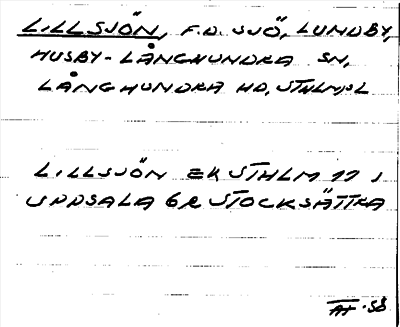 LILLSJÖN, F.D. SJÖ, LUNDBY,
HUSBY-LÅNGHUNDRA SN,
LÅNGHUNDRA HD, STHLM:S L
LILLSJÖN EK STHLM 77 J
UPPSALA 6R STOCKSÄTTRA